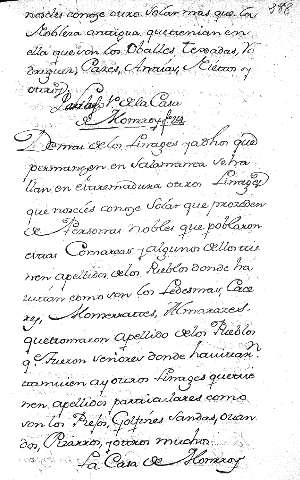 348
no se les conoze otro solar mas que la
Nobleza antigua que tenian en
ella que son los Oballes, Texadas, Ro
driguez, Pazes, Anaias, Nietos y
otros
de la Casa
de Monrroy
Demas de los linages ya dhos que
permanezen en Salamanca se ha
llan en extremadura otros linages
que no se les conoze solar que proceden
de Personas nobles que poblaron
estas Comarcas y algunos de ellos tie
nen apellidos de los Pueblos donde ha
uitan como son los Ledesmas, Caze
res, Monserrates, Almarazes
que tomaron apellido de los Pueblos
q.e fueron señores donde hauitaron
tamuien ay otros linages que tie
nen apellidos particulares como
son los Golfines Sandes, ouan
dos, Pizarros, y otros muchos
La Casa de Monrroy